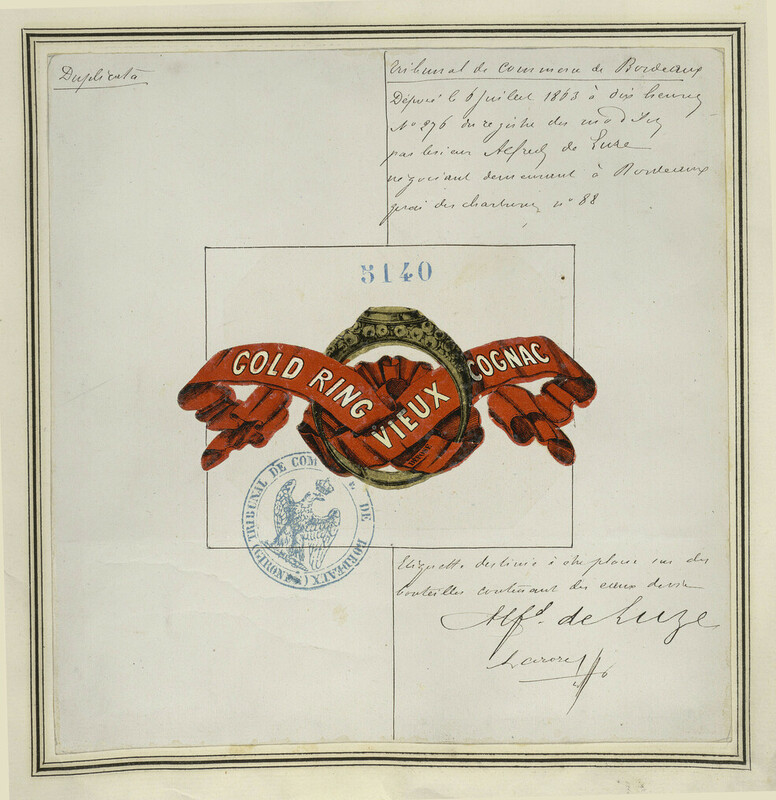 Duplicata
Tribunal de Commerce de Bordeaux
Déposé le 6 juillet 1863 à dix heures
No 276 du registre des modèles
par le sieur Alfred de Luze
négociant demeurant à Bordeaux
quai des chartrons no 88
5140
GOLD RING VIEUX COGNAC
TRIBUNAL DE COM DE BORDEAUX (GIRONDE)
Etiquette destinée à être placée sur des
bouteilles contenant des eaux de vie
Alfd. de Luze